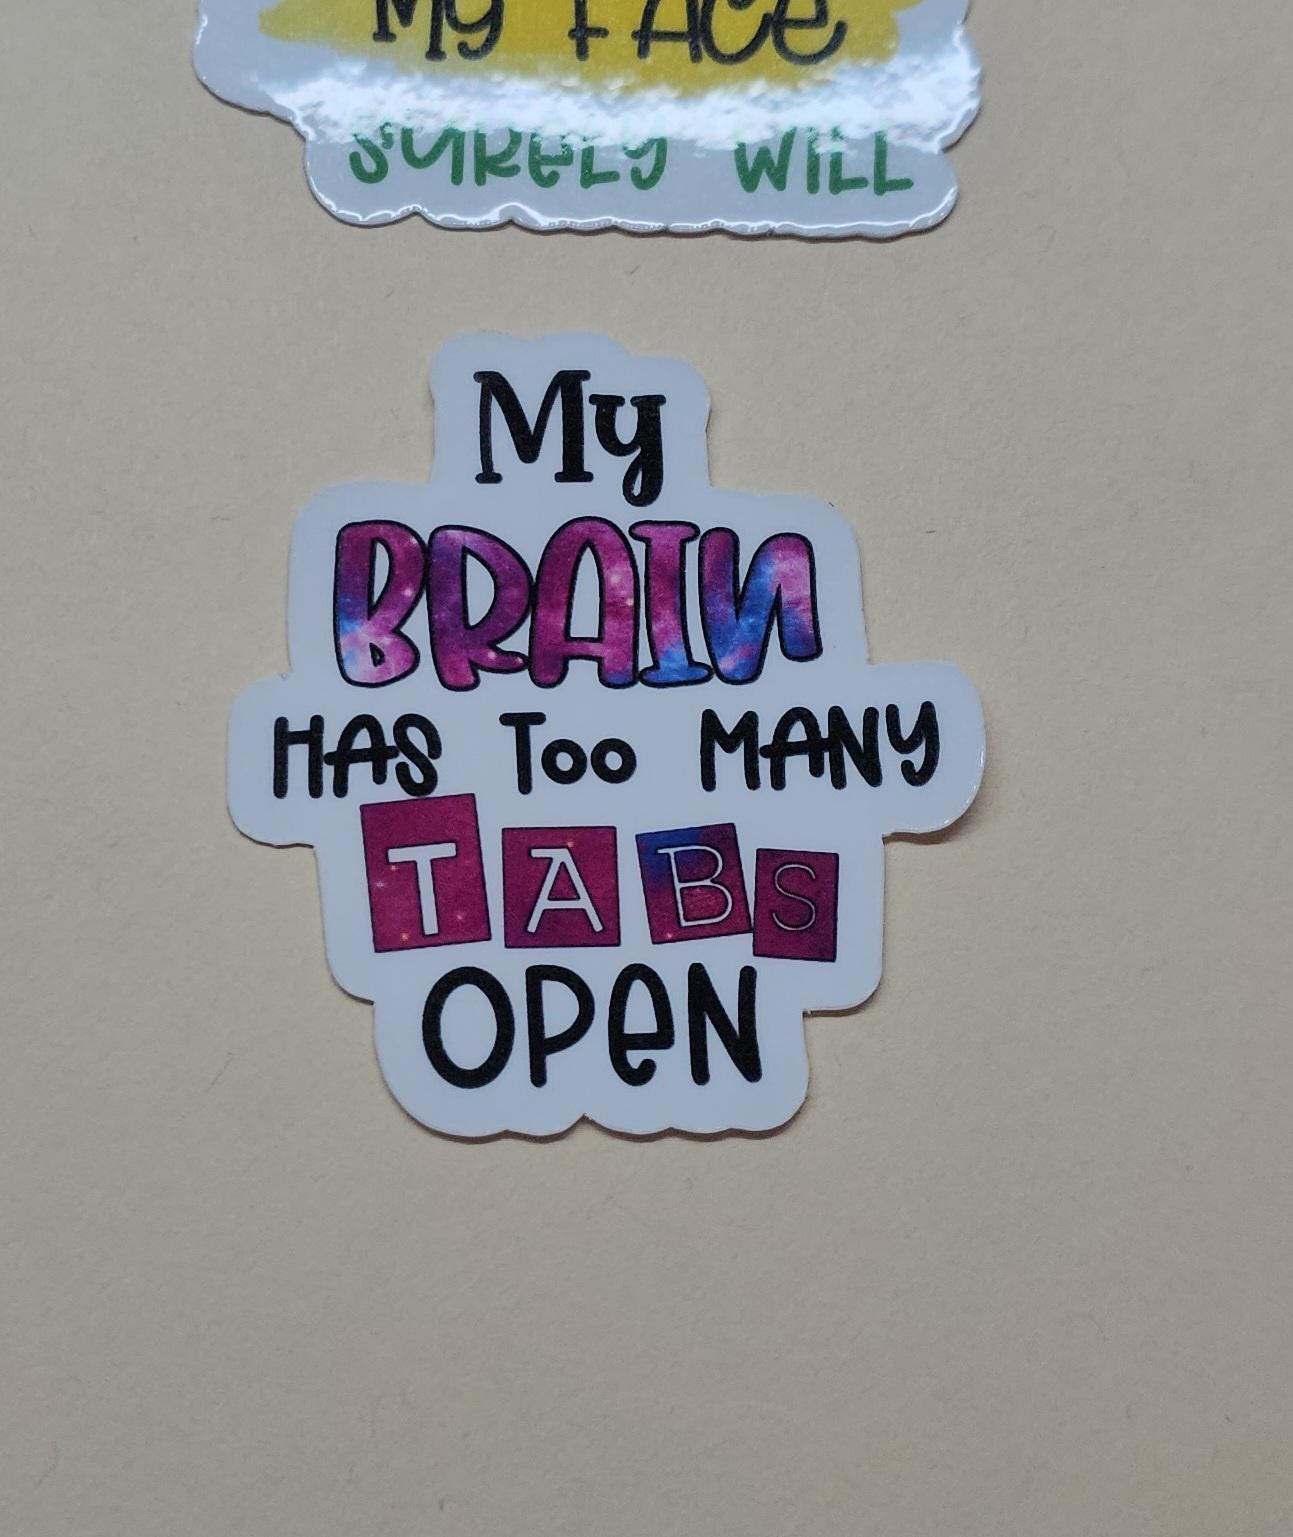 My FACe
SURELY WILL
My
BRAIN
HAS Too MANY
TABS
OPeN